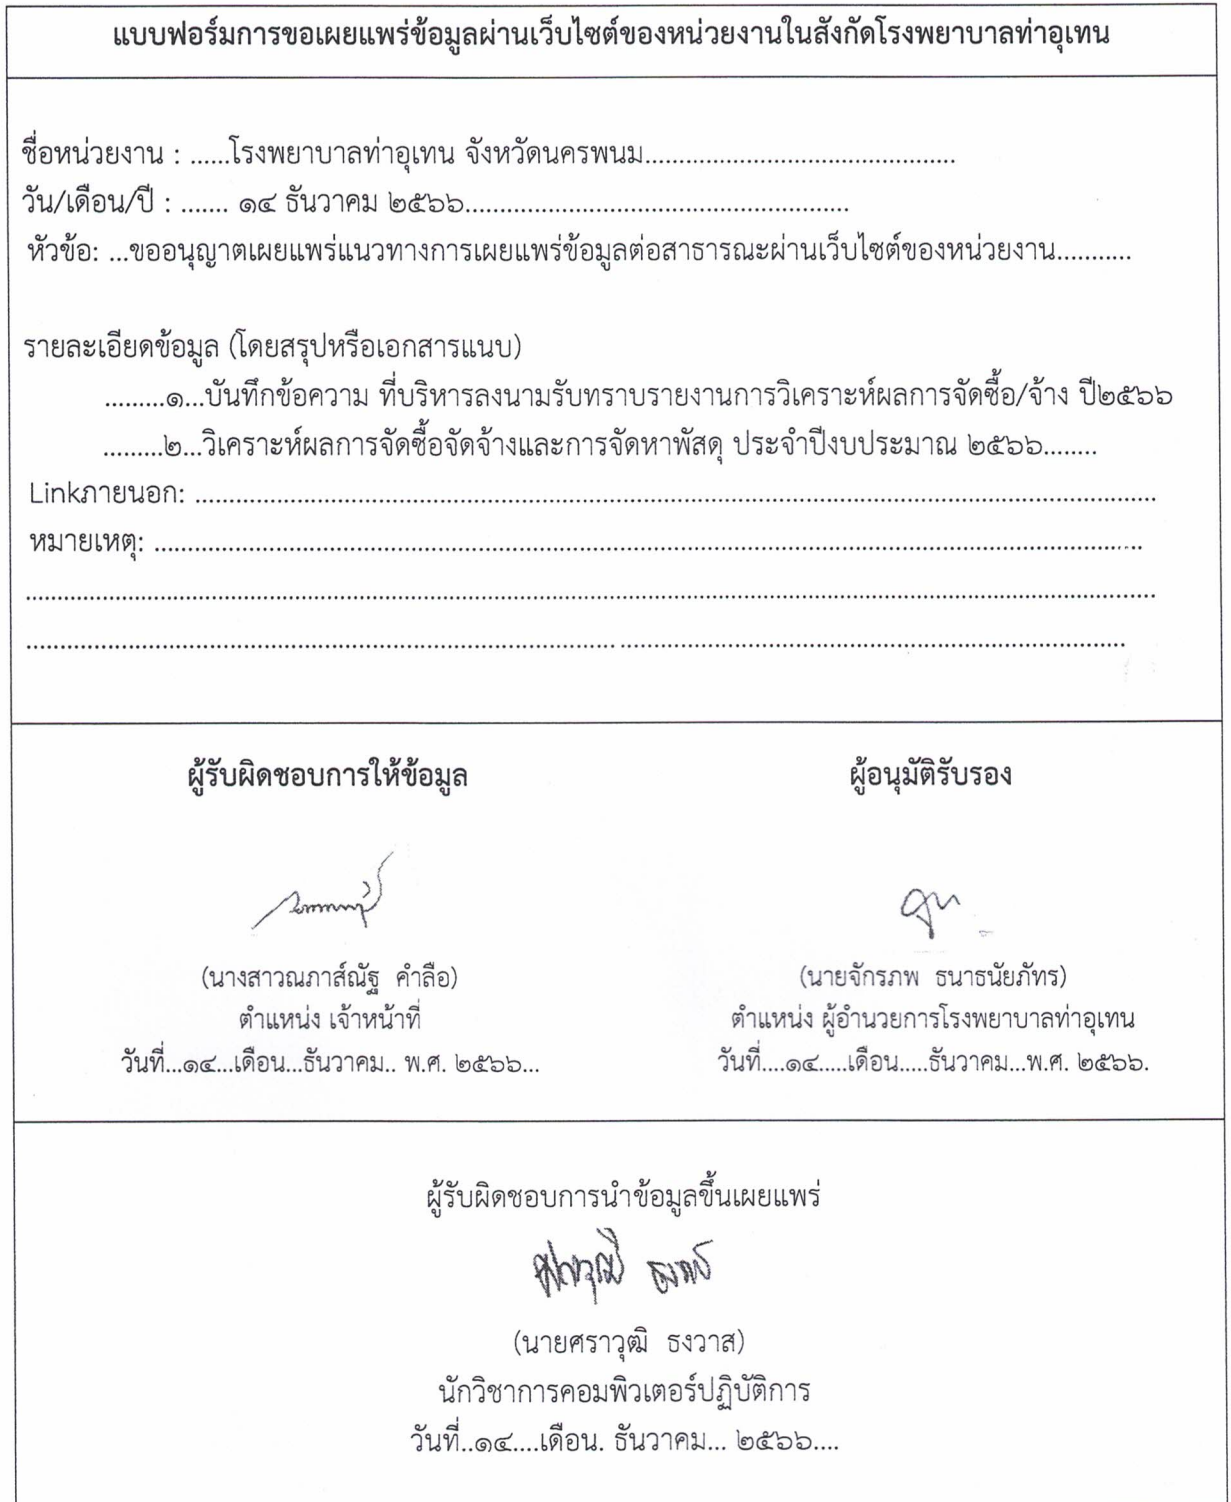 แบบฟอร์มการขอเผยแพร่ข้อมูลผ่านเว็บไซต์ของหน่วยงานในสังกัดโรงพยาบาลท่าอุเทน
ชื่อหน่วยงาน : ......โรงพยาบาลท่าอุเทน จังหวัดนครพนม..............................................
วัน/เดือน/ปี : ....... ๑๔ ธันวาคม ๒๕๖๖.........................................................
หัวข้อ: ...ขออนุญาตเผยแพร่แนวทางการเผยแพร่ข้อมูลต่อสาธารณะผ่านเว็บไซต์ของหน่วยงาน...........
รายละเอียดข้อมูล (โดยสรุปหรือเอกสารแนบ)
.........๑...บันทึกข้อความ ที่บริหารลงนามรับทราบรายงานการวิเคราะห์ผลการจัดซื้อ/จ้าง ปี๒๕๖๖
.........๒...วิเคราะห์ผลการจัดซื้อจัดจ้างและการจัดหาพัสดุ ประจำปีงบประมาณ ๒๕๖๖........
Linkภายนอก: ................................................................................
หมายเหตุ: ................................................................................
ผู้รับผิดชอบการให้ข้อมูล
ผู้อนุมัติรับรอง
(นางสาวณภาส์ณัฐ คำลือ)
(นายจักรภพ ธนาธนัยภัทร)
ตำแหน่ง เจ้าหน้าที่
ตำแหน่ง ผู้อำนวยการโรงพยาบาลท่าอุเทน
วันที่...๑๔...เดือน...ธันวาคม.. พ.ศ. ๒๕๖๖...
วันที่....๑๔.....เดือน.....ธันวาคม...พ.ศ. ๒๕๖๖.
ผู้รับผิดชอบการนำข้อมูลขึ้นเผยแพร่
ศราวุฒิ ธงวาส
(นายศราวุฒิ ธงวาส)
นักวิชาการคอมพิวเตอร์ปฏิบัติการ
วันที่..๑๔....เดือน. ธันวาคม... ๒๕๖๖....